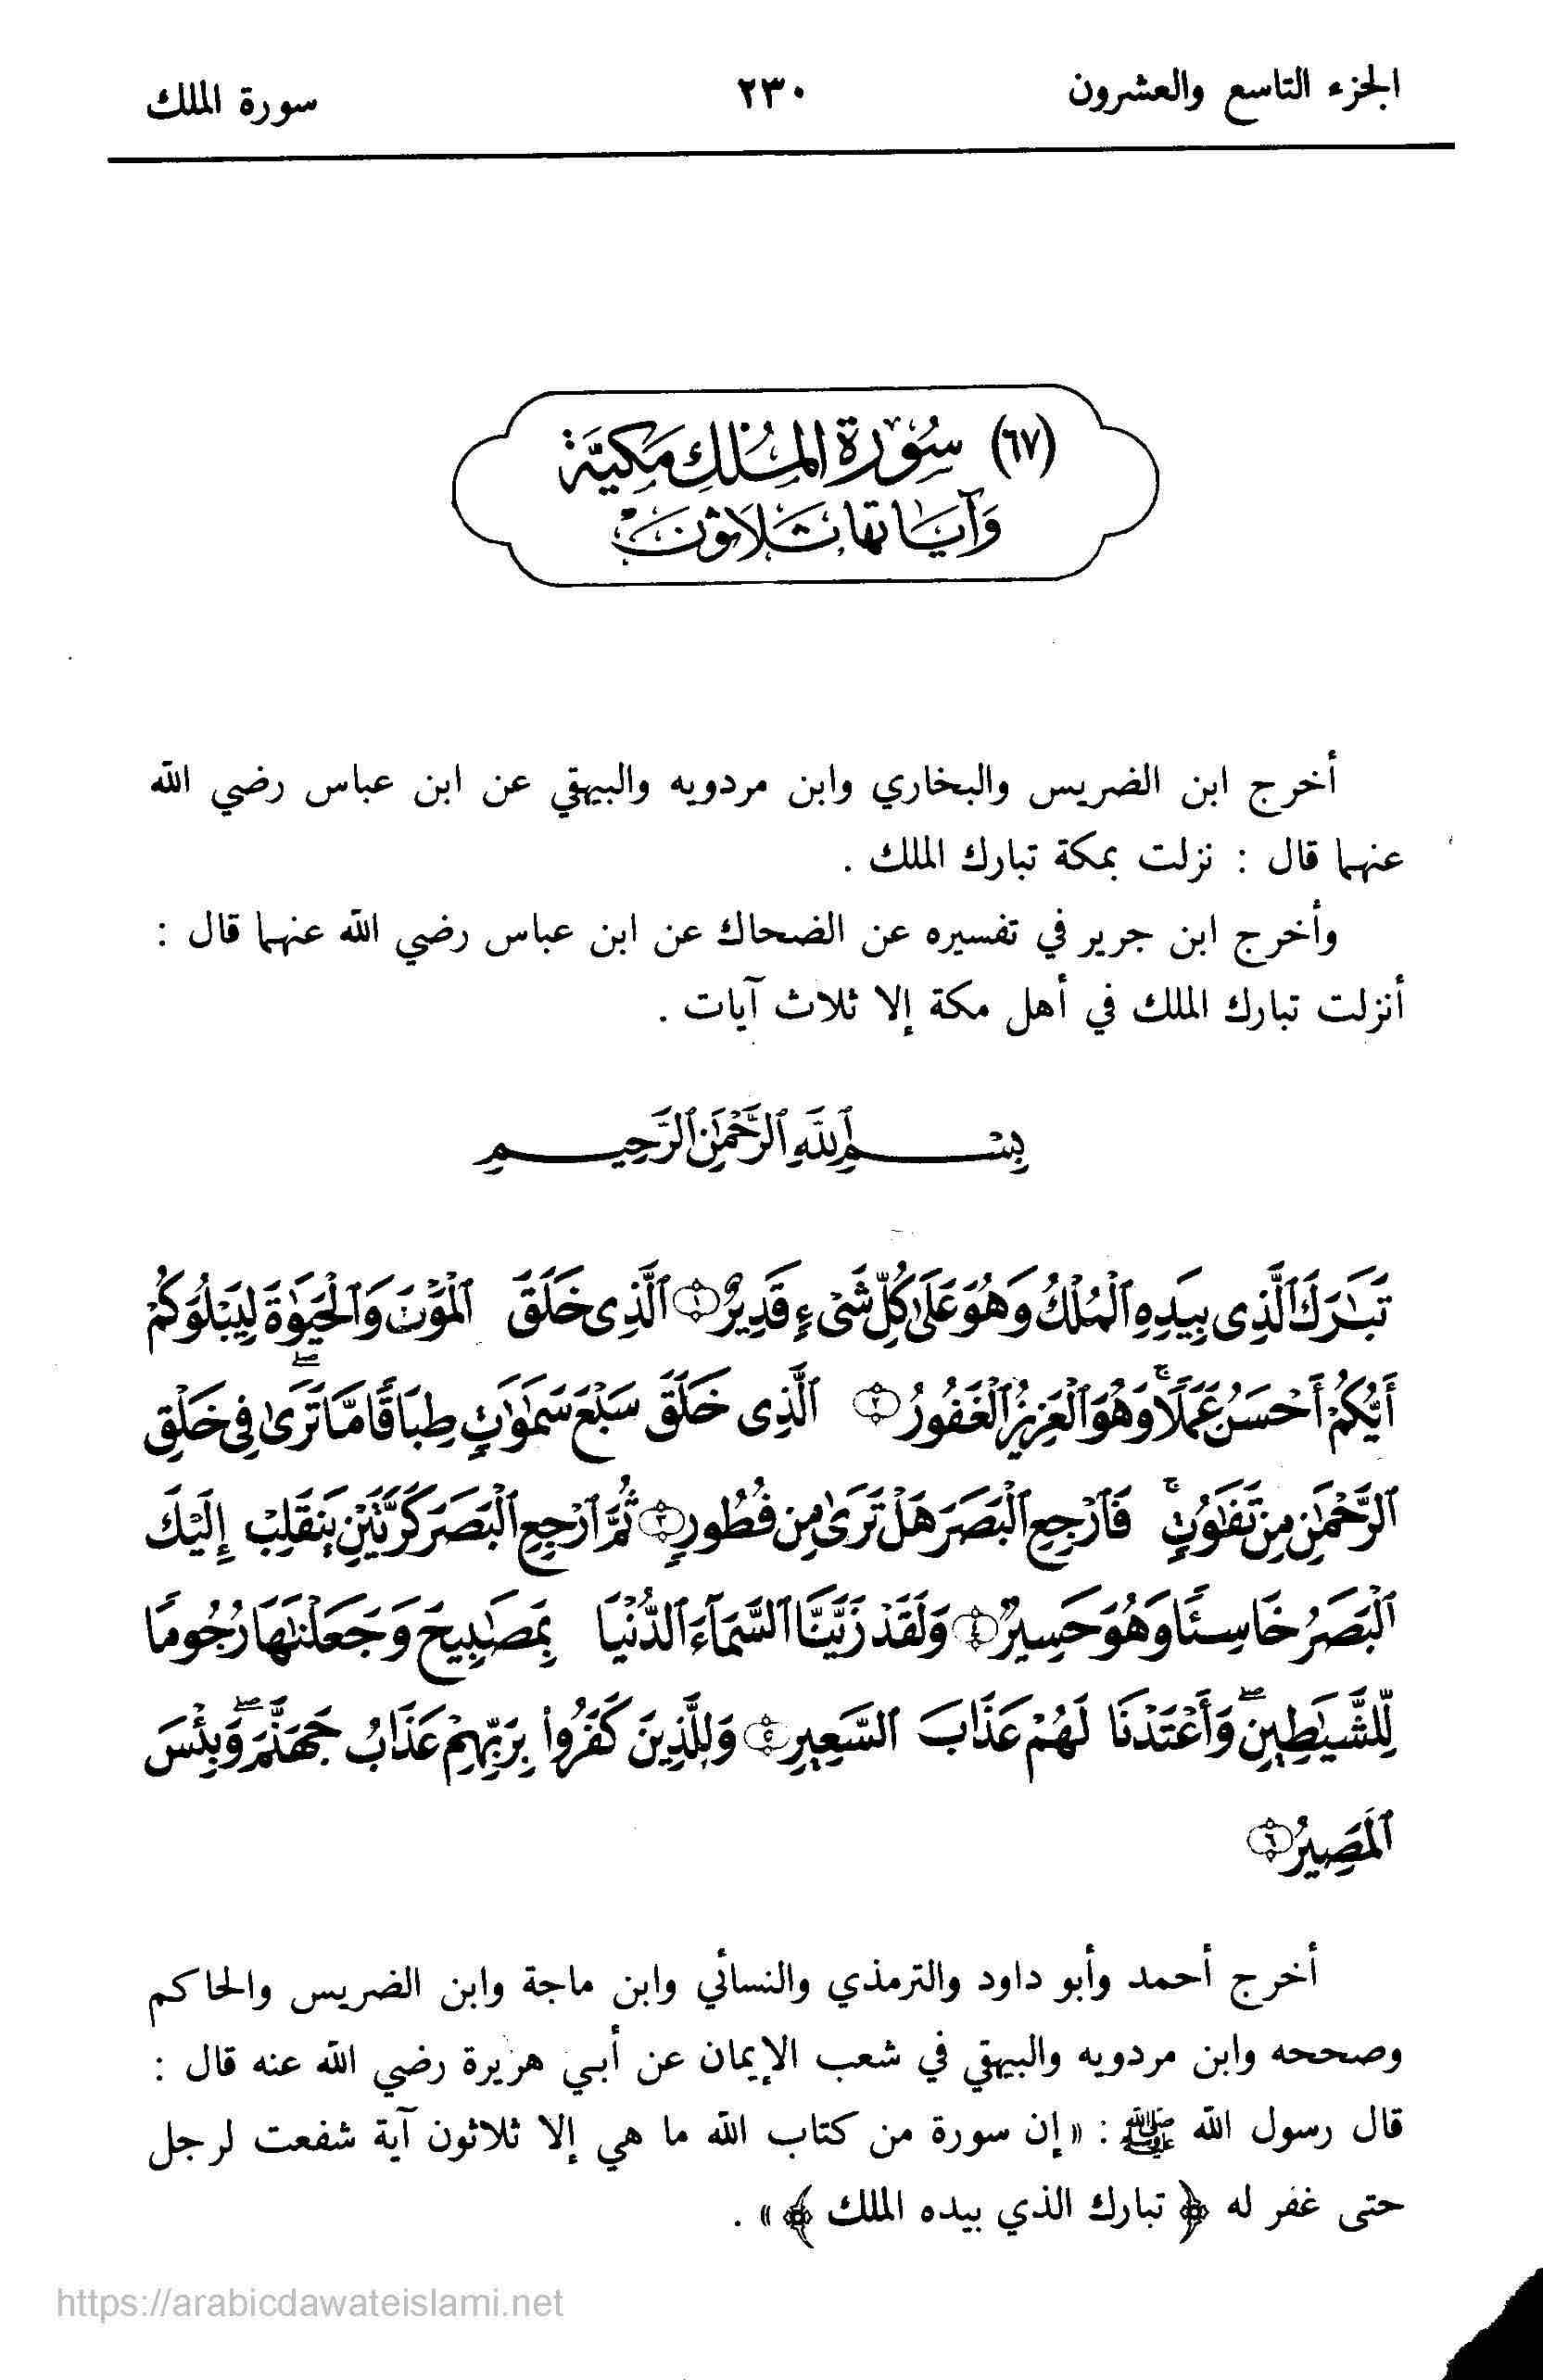 الجزء التاسع والعشرون ٢٣٠ سورة الملك
(٦٧) سُوْرَة المُلكِ مَكيَّة
وَآيَاتها ثَلاثونَ
أخرج ابن الضريس والبخاري وابن مردويه والبيهقي عن ابن عباس رضي الله
عنهما قال : نزلت بمكة تبارك الملك .
وأخرج ابن جرير في تفسيره عن الضحاك عن ابن عباس رضي الله عنهما قال :
أنزلت تبارك الملك في أهل مكة إلا ثلاث آيات .
بِسْمِ ٱللَّهِ ٱلرَّحْمَٰنِ ٱلرَّحِيمِ
تَبَٰرَكَ ٱلَّذِى بِيَدِهِ ٱلْمُلْكُ وَهُوَ عَلَىٰ كُلِّ شَىْءٍ قَدِيرٌ ١ ٱلَّذِى خَلَقَ ٱلْمَوْتَ وَٱلْحَيَوٰةَ لِيَبْلُوَكُمْ
أَيُّكُمْ أَحْسَنُ عَمَلًا ۚ وَهُوَ ٱلْعَزِيزُ ٱلْغَفُورُ ٢ ٱلَّذِى خَلَقَ سَبْعَ سَمَٰوَٰتٍ طِبَاقًا مَّا تَرَىٰ فِى خَلْقِ
ٱلرَّحْمَٰنِ مِن تَفَٰوُتٍ ۚ فَٱرْجِعِ ٱلْبَصَرَ هَلْ تَرَىٰ مِن فُطُورٍ ٣ ثُمَّ ٱرْجِعِ ٱلْبَصَرَ كَرَّتَيْنِ يَنقَلِبْ إِلَيْكَ
ٱلْبَصَرُ خَاسِئًا وَهُوَ حَسِيرٌ ٤ وَلَقَدْ زَيَّنَّا ٱلسَّمَآءَ ٱلدُّنْيَا بِمَصَٰبِيحَ وَجَعَلْنَٰهَا رُجُومًا
لِّلشَّيَٰطِينِ ۖ وَأَعْتَدْنَا لَهُمْ عَذَابَ ٱلسَّعِيرِ ٥ وَلِلَّذِينَ كَفَرُوا۟ بِرَبِّهِمْ عَذَابُ جَهَنَّمَ ۖ وَبِئْسَ
ٱلْمَصِيرُ ٦
أخرج أحمد وأبو داود والترمذي والنسائي وابن ماجة وابن الضريس والحاكم
وصححه وابن مردويه والبيهقي في شعب الإيمان عن أبي هريرة رضي الله عنه قال :
قال رسول الله ﷺ : « إن سورة من كتاب الله ما هي إلا ثلاثون آية شفعت لرجل
حتى غفر له ﴿ تبارك الذي بيده الملك ﴾ » .
https://arabicdawateislami.net